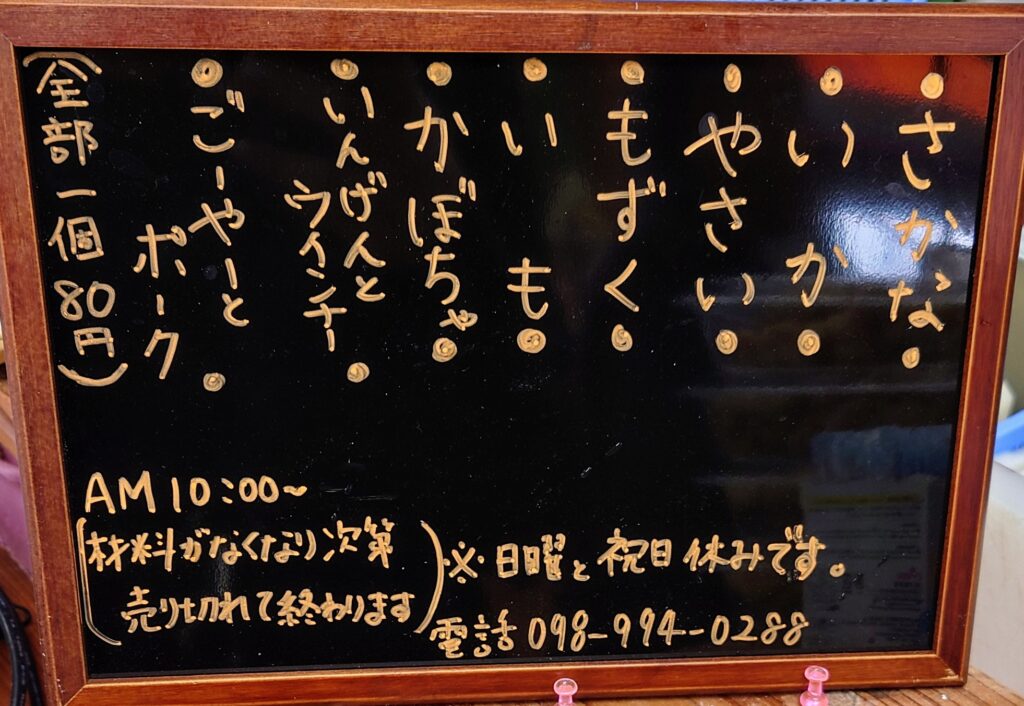 さかな
いか
やさい
もずく
いも
かぼちゃ
いんげんと
ウインナー
ごーやーと
ポーク
(全部一個80円)
AM10:00~
(材料がなくなり次第
売り切れて終わります)
※日曜と祝日休みです。
電話098-994-0288